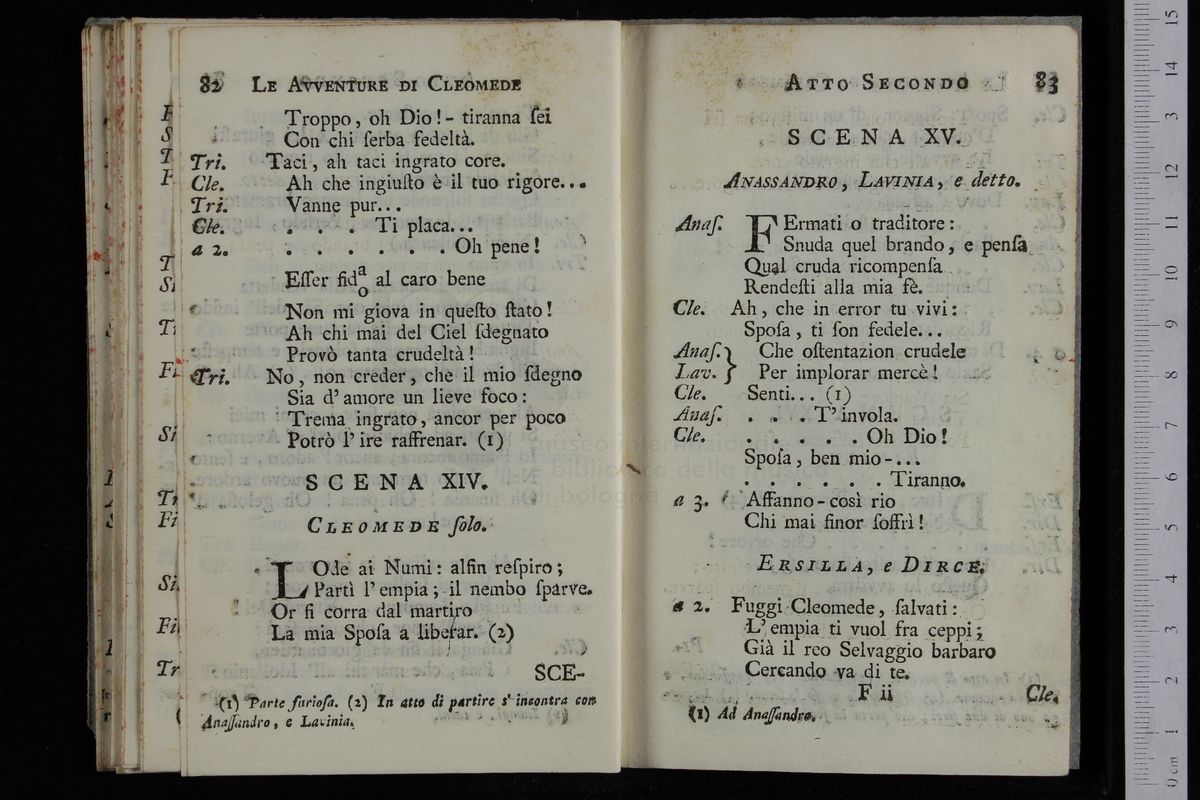 82 LE AVVENTURE DI CLEOMEDE
Troppo, oh Dio! - tiranna ſei
Con chi ſerba fedeltà.
Tri. Taci, ah taci ingrato core.
Cle. Ah che ingiuſto è il tuo rigore...
Tri. Vanne pur...
Cle. . . . Ti placa...
a 2. . . . . . . Oh pene!
Eſſer fid a o al caro bene
Non mi giova in queſto ſtato!
Ah chi mai del Ciel ſdegnato
Provò tanta crudeltà!
Tri. No, non creder, che il mio ſdegno
Sia d'amore un lieve foco:
Trema ingrato, ancor per poco
Potrò l'ire raffrenar. (1)
SCENA XIV.
CLEOMEDE ſolo.
LOde ai Numi: alfin reſpiro;
Partì l'empia; il nembo ſparve.
Or ſi corra dal martiro
La mia Spoſa a liberar. (2)
SCE-
(1) Parte furioſa. (2) In atto di partire s'incontra con
Anaſſandro, e Lavinia.
ATTO SECONDO 83
SCENA XV.
ANASSANDRO, LAVINIA, e detto.
Anaſ. FErmati o traditore:
Snuda quel brando, e penſa
Qual cruda ricompenſa
Rendeſti alla mia fè.
Cle. Ah, che in error tu vivi:
Spoſa, ti ſon fedele...
Anaſ. } Che oſtentazion crudele
Lav. } Per implorar mercè!
Cle. Senti... (1)
Anaſ. . . . T'invola.
Cle. . . . . . Oh Dio!
Spoſa, ben mio-...
. . . . . . Tiranno.
a 3. Affanno - così rio
Chi mai finor ſoffrì!
ERSILLA, e DIRCE.
a 2. Fuggi Cleomede, ſalvati:
L'empia ti vuol fra ceppi;
Già il reo Selvaggio barbaro
Cercando va di te.
F ii Cle.
(1) Ad Anaſſandro.
museo internazionale
e biblioteca della musica
di bologna